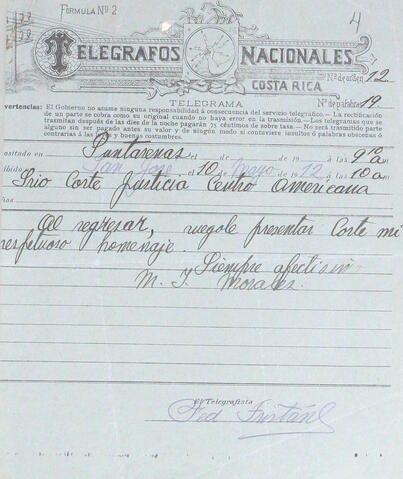 FÓRMULA Nº 2
4
TELEGRAFOS NACIONALES
COSTA RICA
Nº de orden 12
TELEGRAMA
Nº de palabras 19
vertencias: El Gobierno no asume ninguna responsabilidad á consecuencia del servicio telegráfico.—La rectificación
de un parte se cobra como su original cuando no haya error en la trasmisión.—Los telegramas que se
trasmitan después de las diez de la noche pagarán 75 céntimos de sobre tasa.—No será trasmitido parte
alguno sin ser pagado antes su valor y de ningún modo si contuviere insultos ó palabras obscenas ó
contrarias á las leyes y buenas costumbres.
ositado en Puntarenas el de de 19 á las 9 10 a m
ibido San José el 10 de Mayo de 1912 á las 10 a m
Srio Corte Justicia Centro Americana
Al regresar, ruegole presentar Corte mi
respetuoso homenaje.
Siempre afectísim
M. J. Morales.
El Telegrafista
Fed Tristán